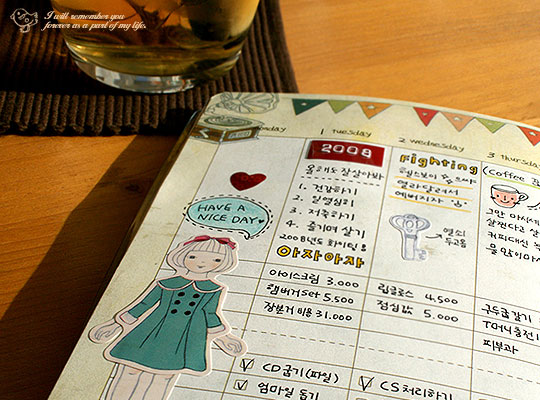 I will remember you
forever as a part of my life.
monday
1 tuesday
2 wednesday
3 thursday
2008
올해도 잘살아봐
1. 건강하기
2. 열씸히
3. 저축하기
4. 즐기며 살기
2008년도 화이팅!
아자아자
HAVE A
NICE DAY
Fighting
열라달려서
열쇠
두고옴
(coffee
그만 마셔
살쪘다고
커피대신
물 많이마시
아이스크림 3.000
햄버거 set 5.500
장보기 비용 31.000
립글로스 4.500
점심값 5.000
구두굽 갈기
피부과
CD굽기(파일)
엄마일 돕기
CS처리하기